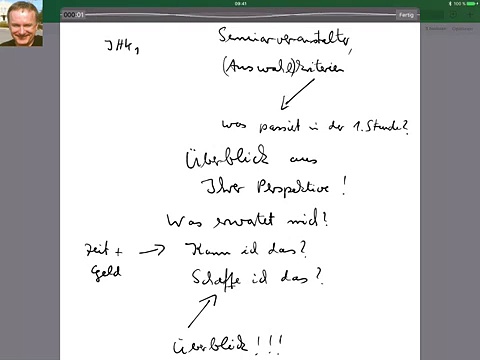 09:41
100 %
000:01
Fertig
IHK,
Seminarveranstalter,
(Auswahl)kriterien
Was passiert in der 1. Stunde?
Überblick aus
Ihrer Perspektive!
Was erwartet mich?
Zeit +
Geld
Kann ich das?
Schaffe ich das?
Überblick!!!